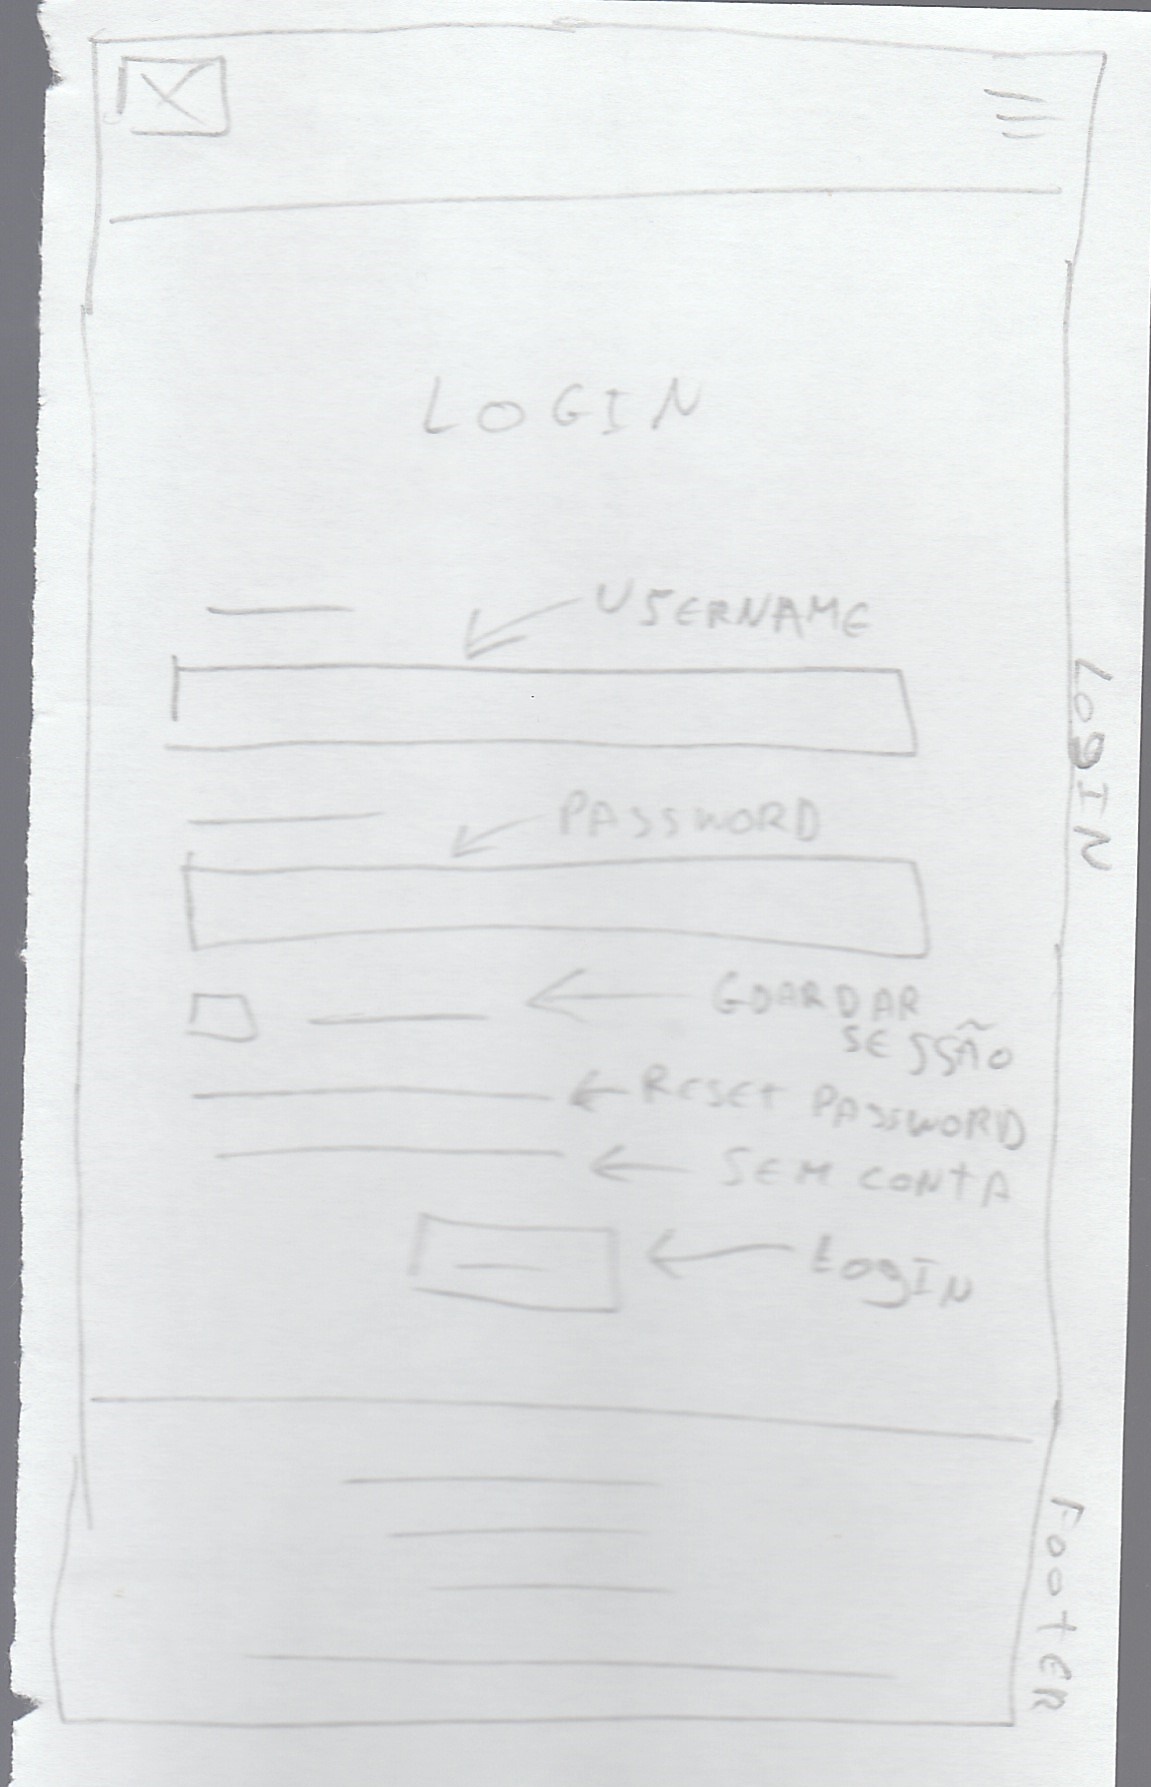 LOGIN
USERNAME
LogIN
PASSWORD
GUARDAR
SESSÃO
RESET PASSWORD
SEM CONTA
LogIN
FOOTER